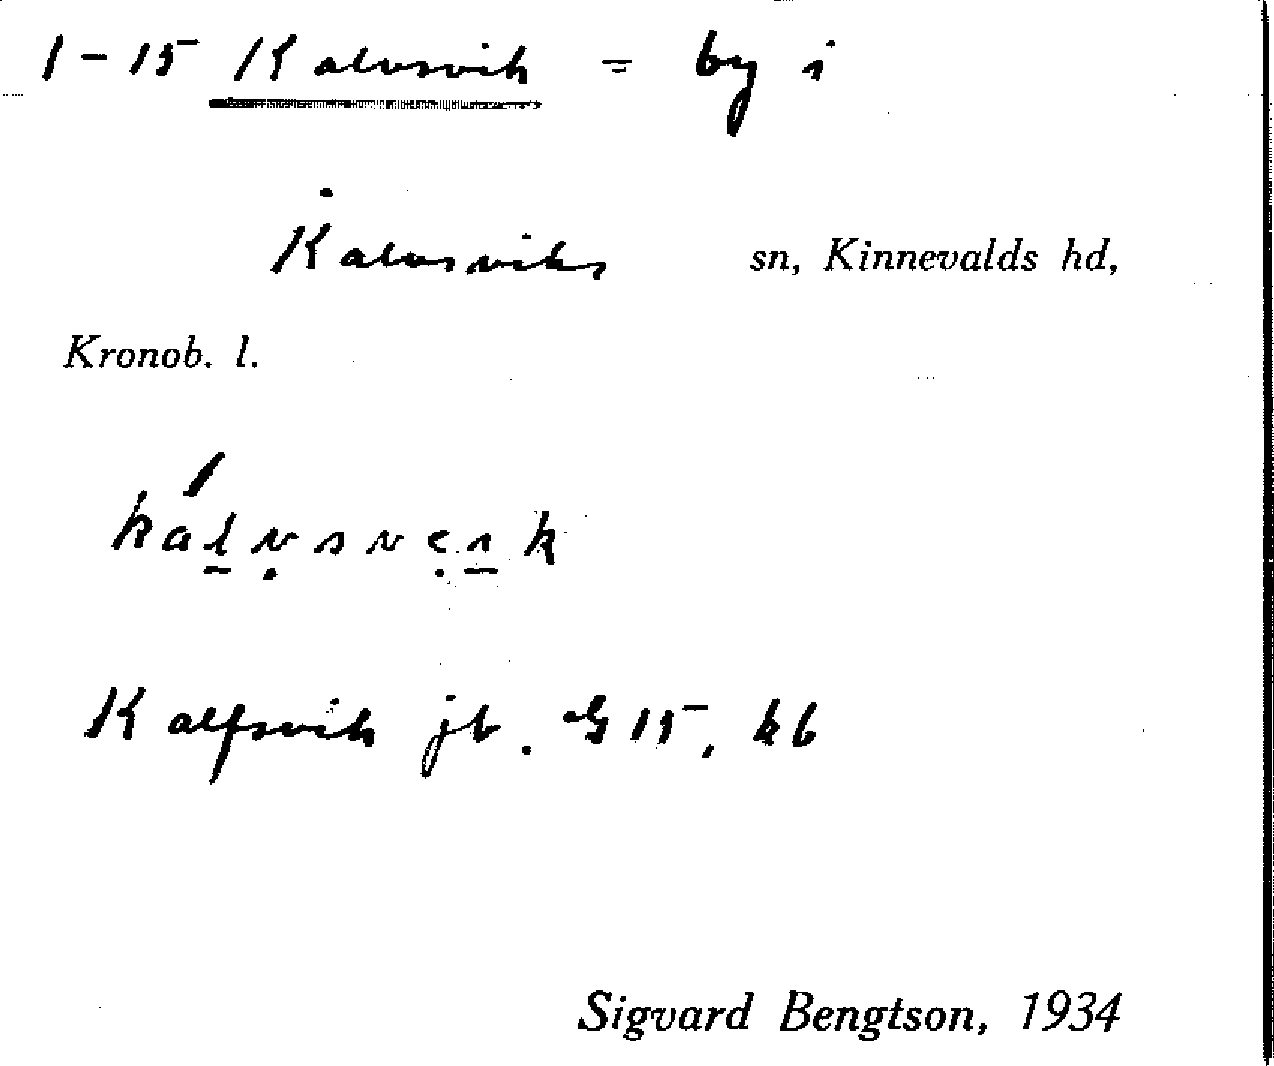 1-15 Kalvsvik = by i
Kalvsviks sn, Kinnevalds hd,
Kronob. l.
Kalfsvik jb. G 15, kb
Sigvard Bengtson, 1934